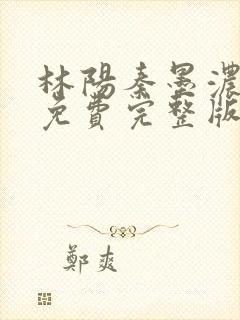 林陽秦墨濃
免費完整版
鄭爽